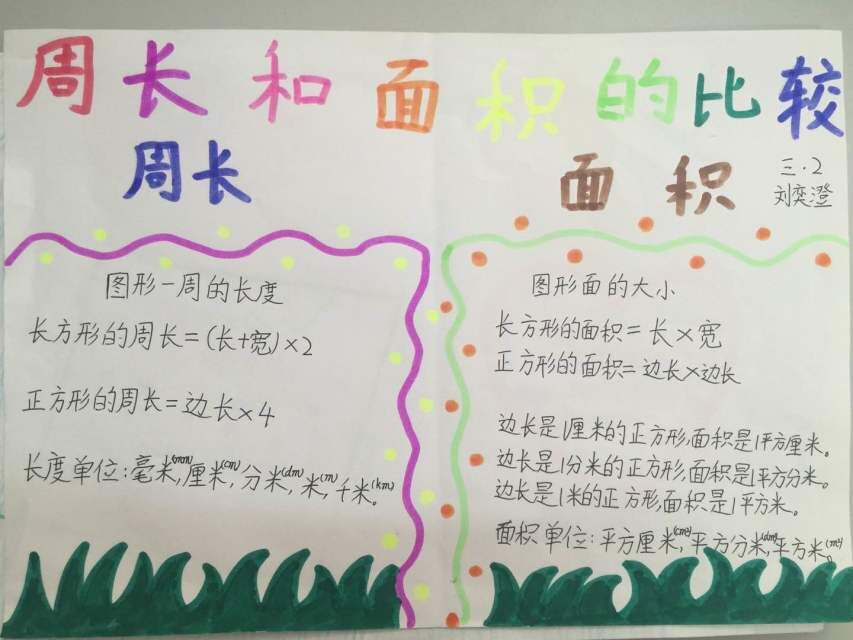 周长和面积的比较
周长
图形一周的长度
长方形的周长=(长+宽)×2
正方形的周长=边长×4
长度单位:毫米(mm),厘米(cm),分米(dm),米(m),千米(km)。
面积
三.2
刘奕澄
图形面的大小
长方形的面积=长×宽
正方形的面积=边长×边长
边长是1厘米的正方形,面积是1平方厘米。
边长是1分米的正方形,面积是1平方分米。
边长是1米的正方形,面积是1平方米。
面积单位:平方厘米(cm²),平方分米(dm²),平方米(m²)。